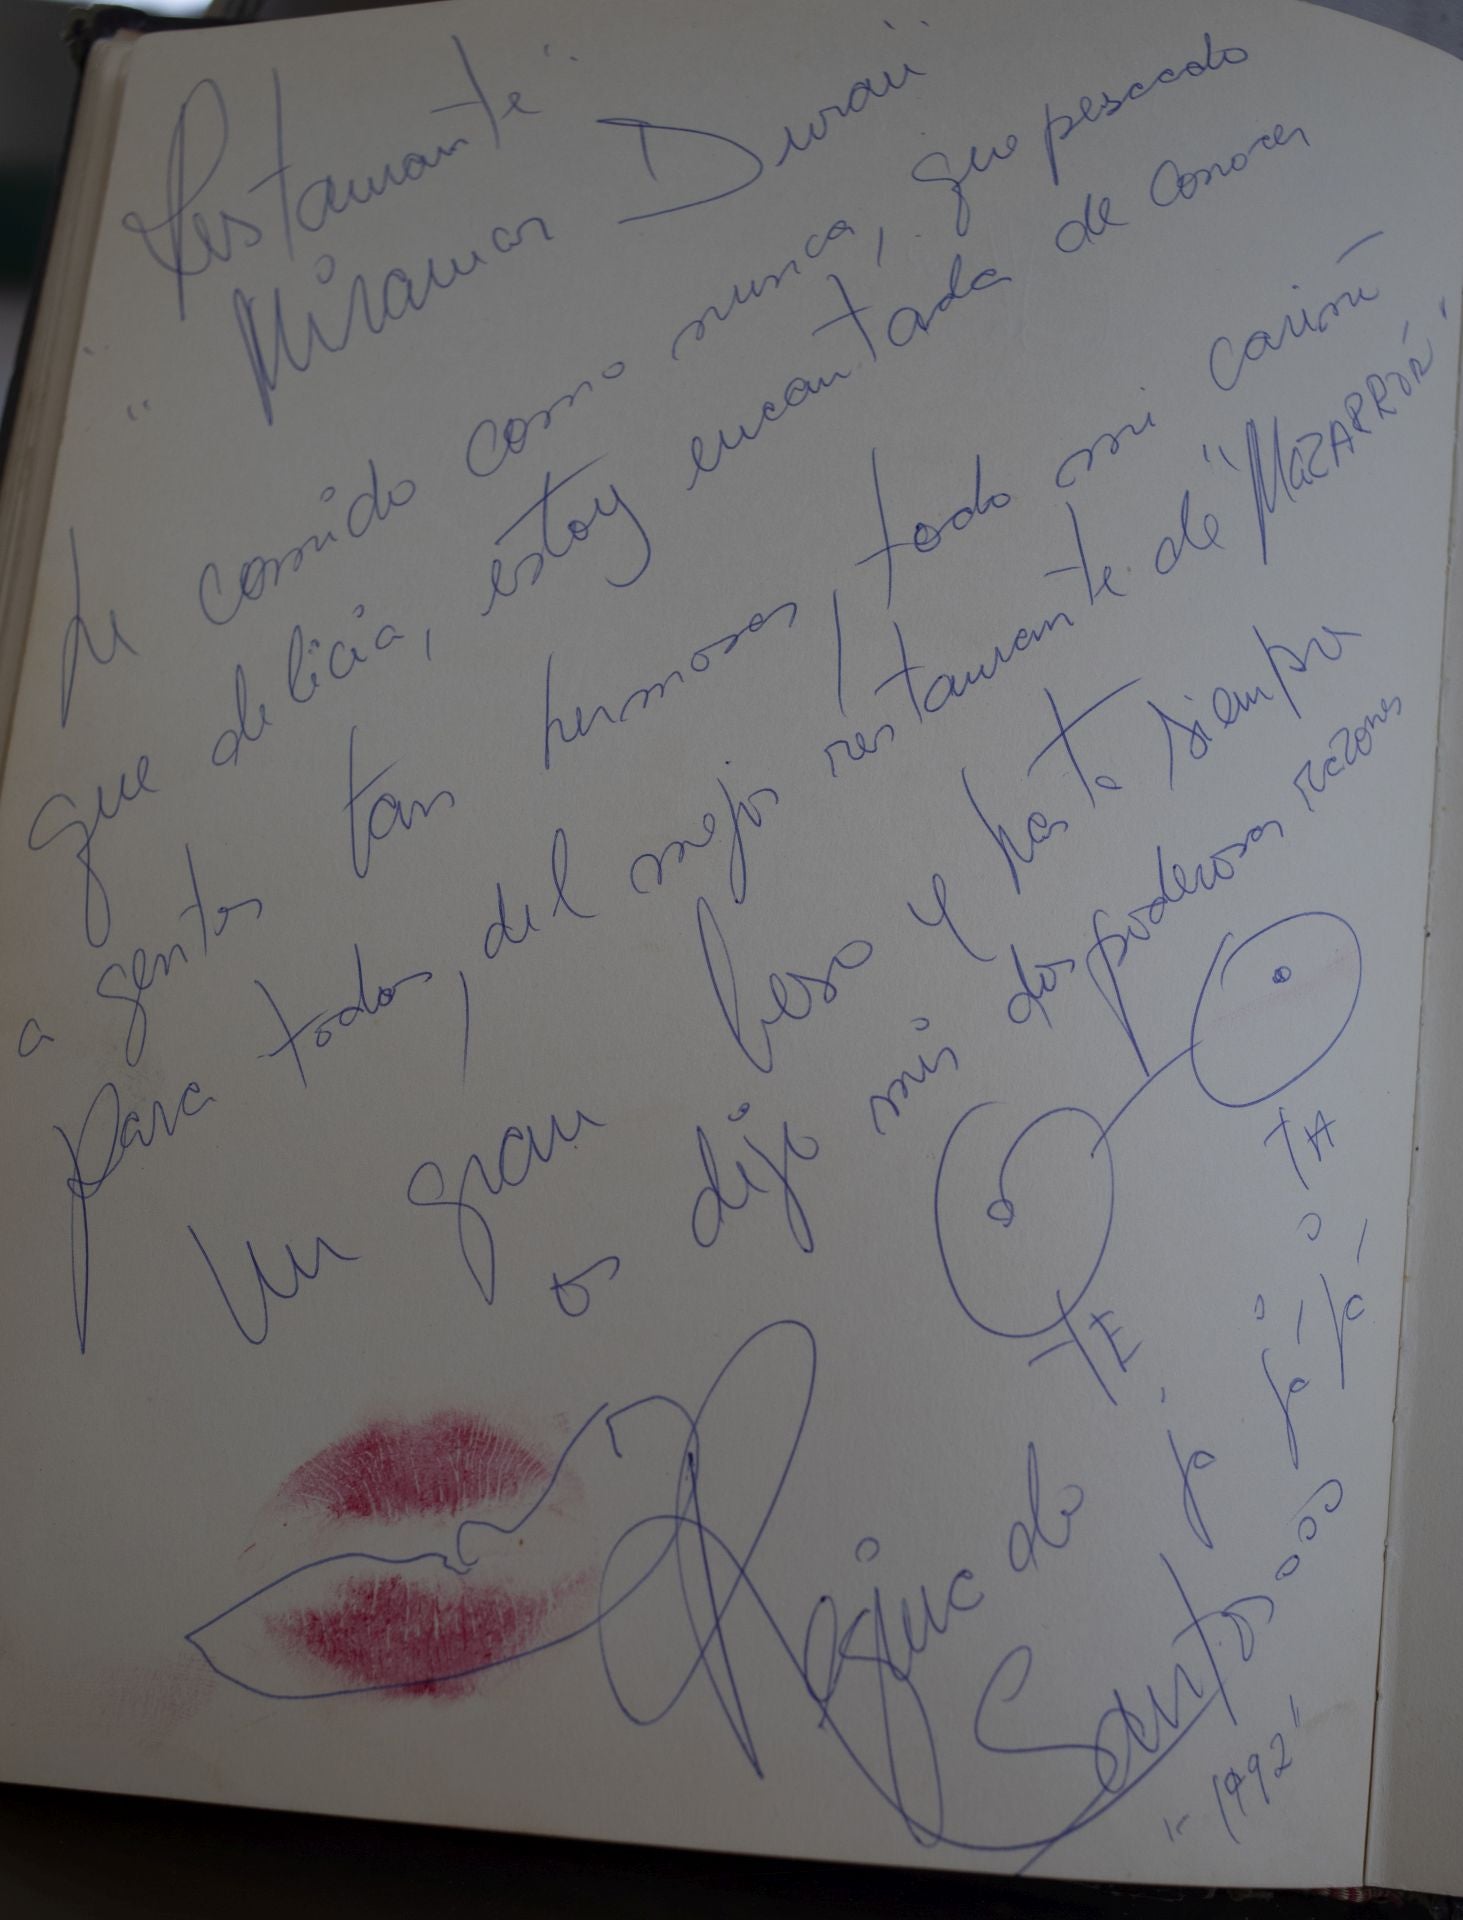 "Restaurante"
"Miramar Durán"
He comido como nunca, que pescado
que delicia, estoy encantada de conocer
a gentes tan hermosas, todo mi cariño
para todos, del mejor restaurante de "MAZARRÓN"
Un gran beso y hasta siempre
os dijo mis dos poderosas razones
TE TA
ja já já
Regina do Santos
"- 1992"